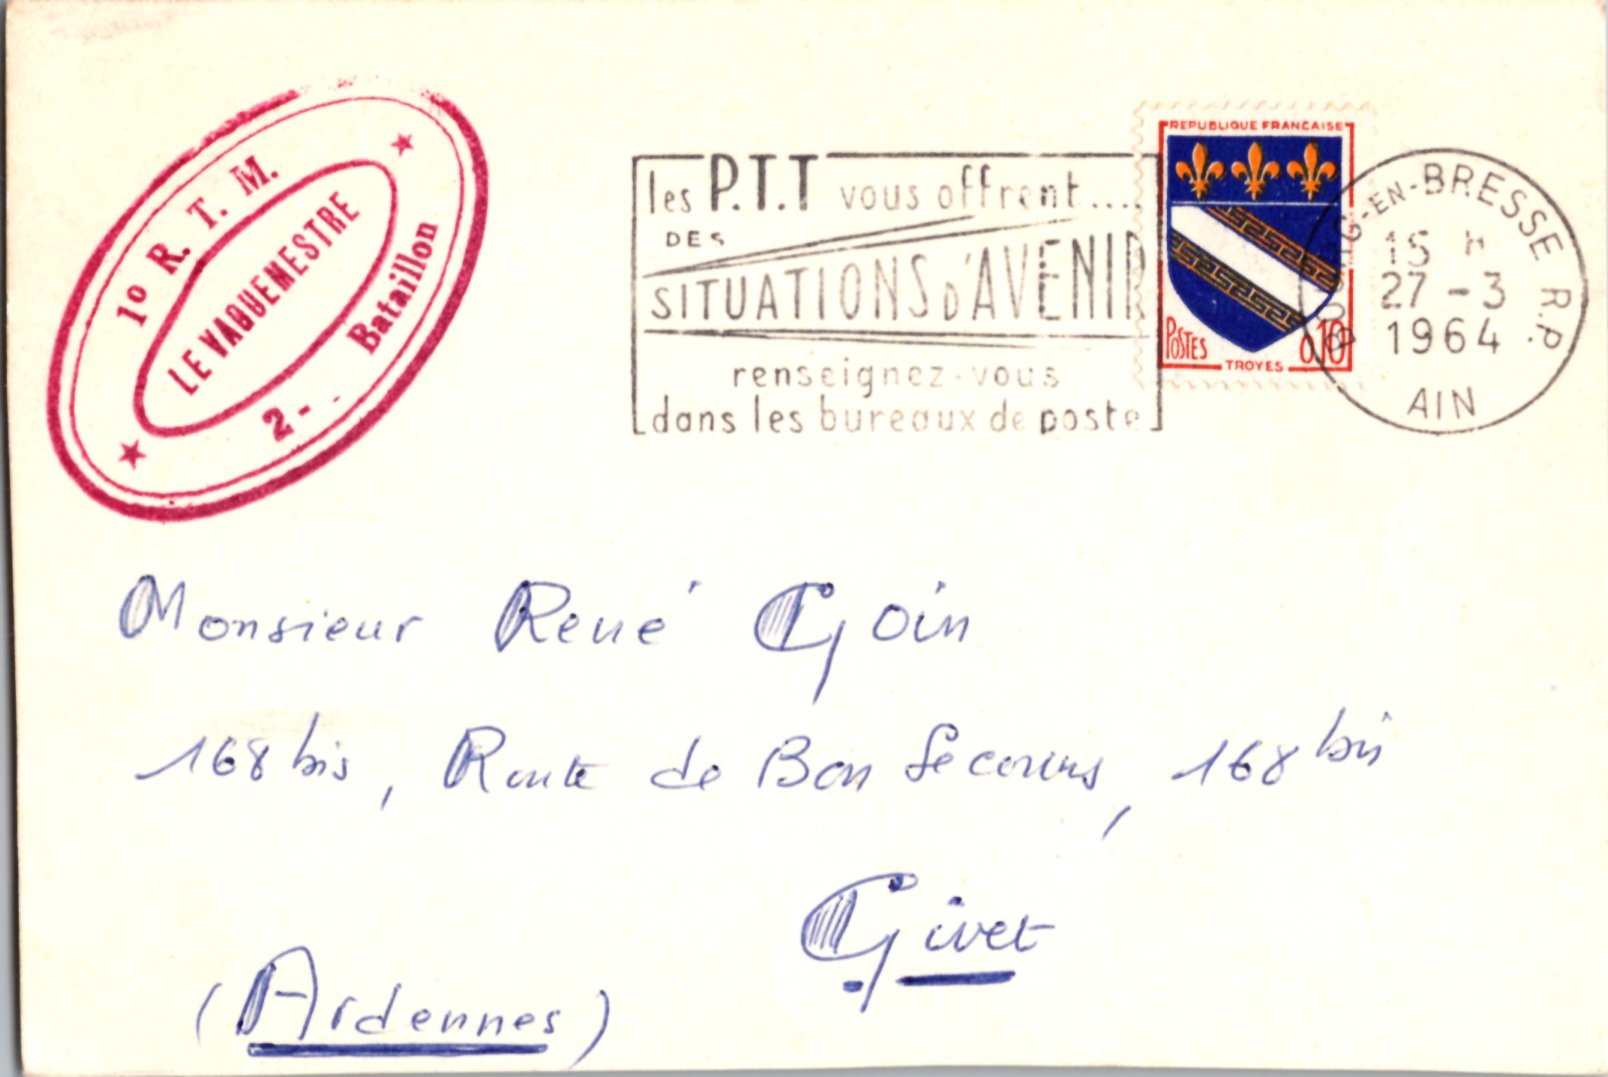 1º R. T. M.
LE VAGUEMESTRE
2- Bataillon
les P.T.T vous offrent....
DES
SITUATIONS D'AVENIR
renseignez-vous
dans les bureaux de poste
REPUBLIQUE FRANCAISE
POSTES 0,10
TROYES
BOURG-EN-BRESSE R.P.
15 H
27 - 3
1964
AIN
Monsieur René Goin
168 bis, Route de Bon Secours, 168 bis
Givet
(Ardennes)